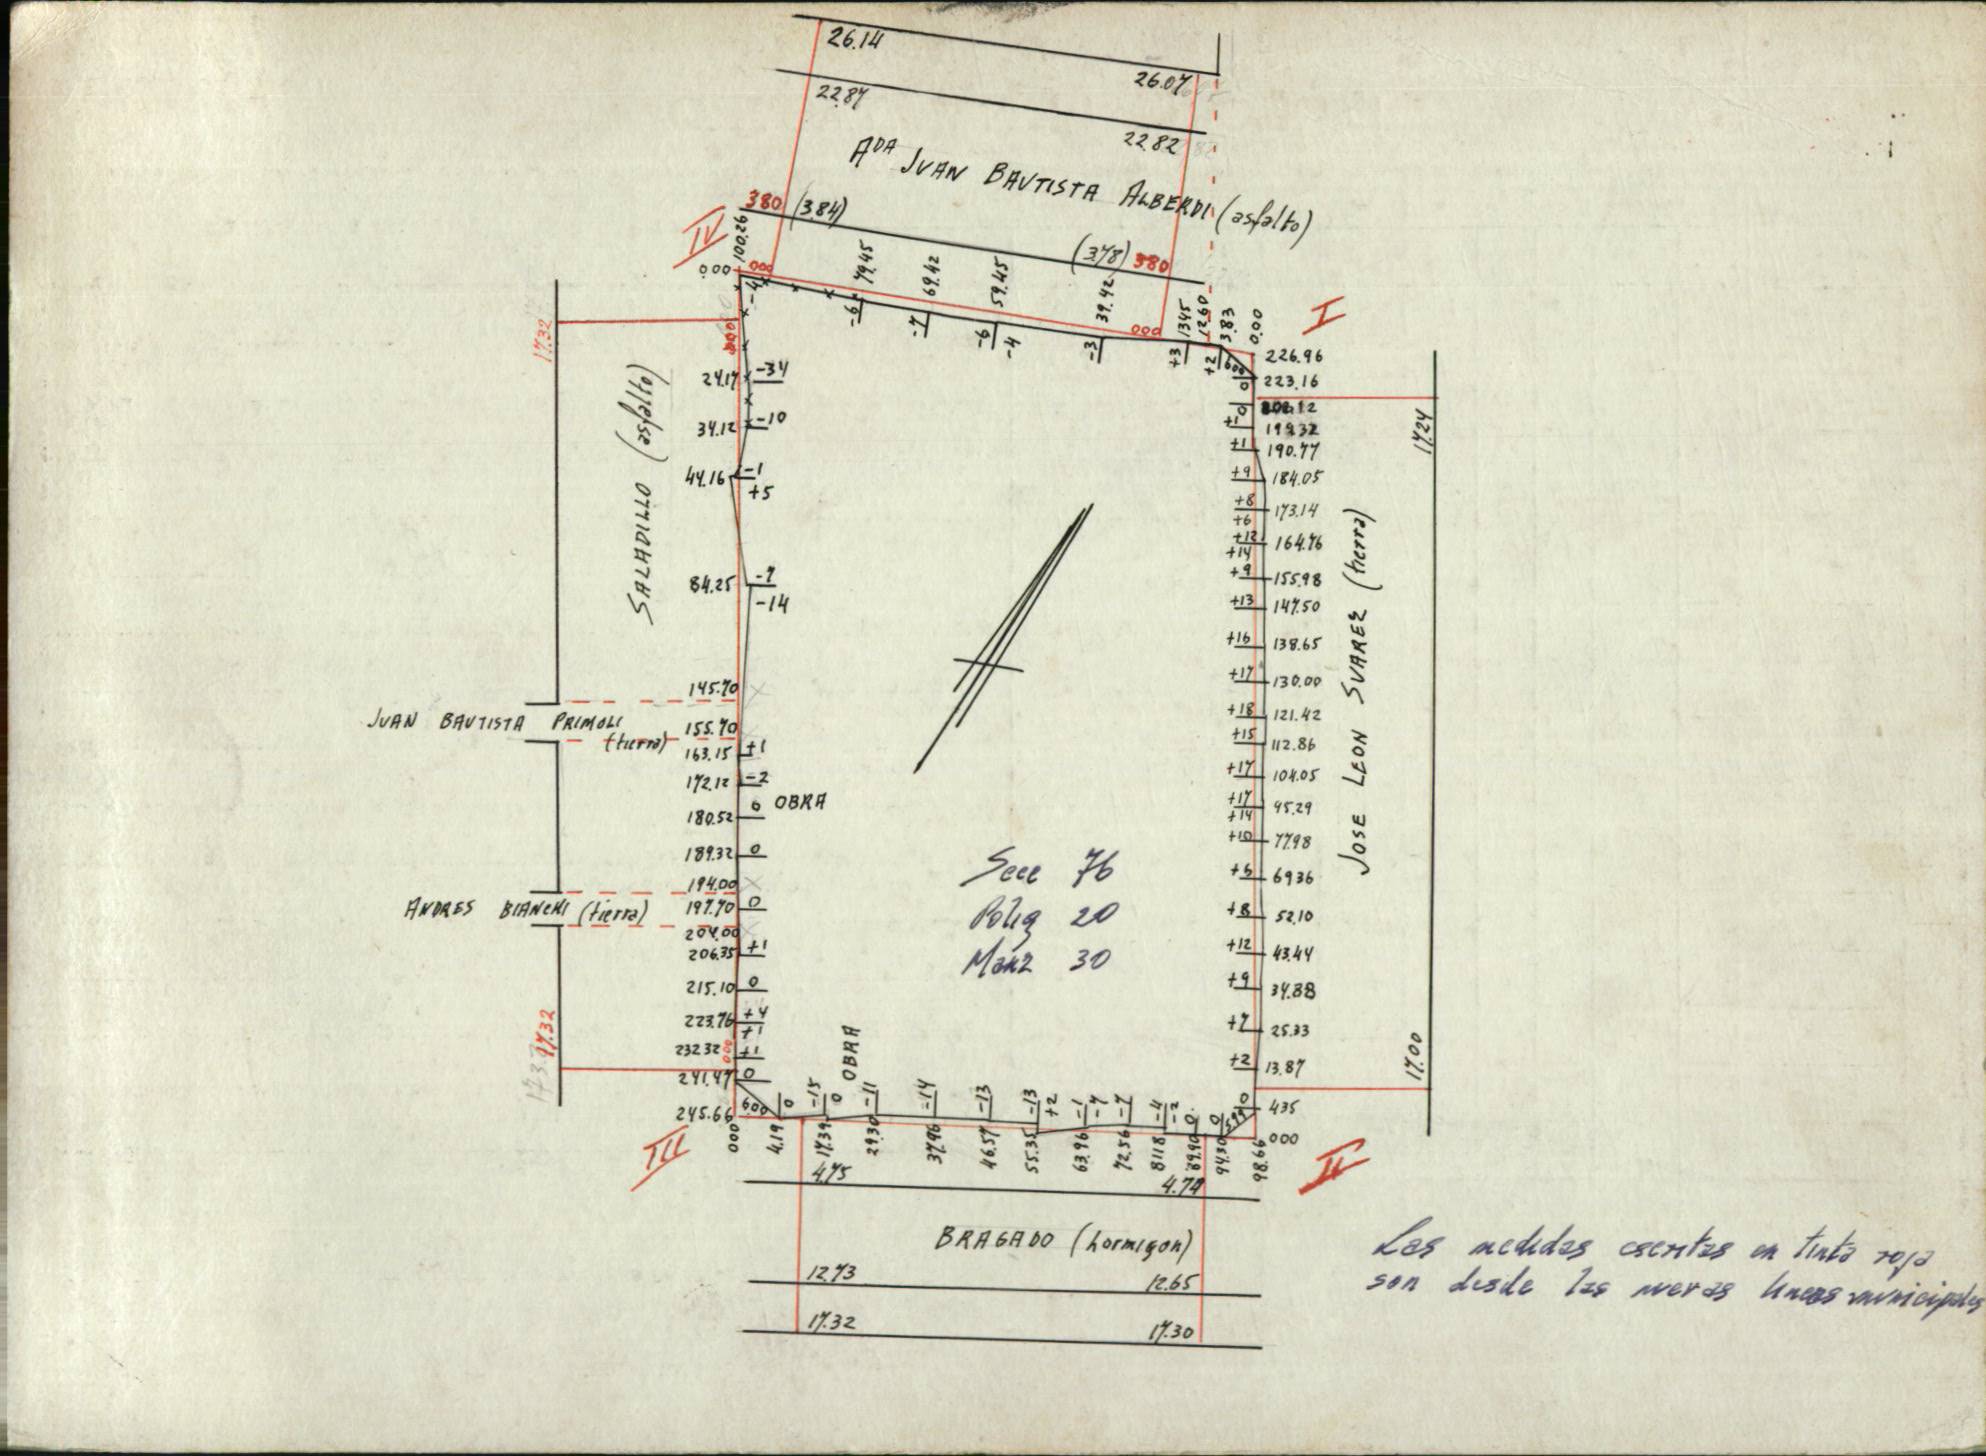 26.14
26.07
22.87
22.82
ADA JUAN BAUTISTA ALBERDI (asfalto)
380 (3.84)
(3.78) 380
IV
100.26
79.45
69.42
59.45
39.42
13.45
12.60
3.83
0.00
0.00
000
000
-4
-6
-7
-6
-4
-3
+3
+2
I
226.96
223.16
0
202.12
0
199.32
+1
190.77
+1
184.05
+9
173.14
+8
+6
164.76
+12
+14
155.98
+9
147.50
+13
138.65
+16
130.00
+17
121.42
+18
112.86
+15
104.05
+17
95.29
+17
+14
77.98
+10
69.36
52.10
+8
43.44
+12
34.88
+9
25.33
+7
13.87
+2
4.35
0
000
JOSE LEON SUAREZ (tierra)
17.24
17.00
17.32
SALADILLO (asfalto)
000
24.17
-34
34.12
-10
44.16
-1
+5
84.25
-7
-14
145.70
JUAN BAUTISTA PRIMOLI
(tierra)
155.70
163.15
+1
172.12
-2
180.52
0
OBRA
189.32
0
194.00
ANDRES BIANCHI (tierra)
197.70
0
204.00
206.35
+1
215.10
0
223.76
+4
+1
232.32
+1
000
241.47
0
245.66
6.00
17.32
Secc 76
Polig 20
Manz 30
OBRA
0
-15
0
-11
-14
-13
-13
+2
-1
-7
-7
-4
-2
0
0
III
000
4.19
17.39
29.30
37.96
46.57
55.35
63.96
72.56
81.18
89.90
94.30
98.66
II
4.75
4.74
BRAGADO (hormigon)
12.73
12.65
17.32
17.30
Las medidas escritas en tinta roja
son desde las nuevas lineas municipales